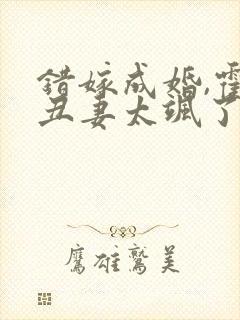 错嫁成婚,霍
丑妻太飒了
鹰雄鹫美